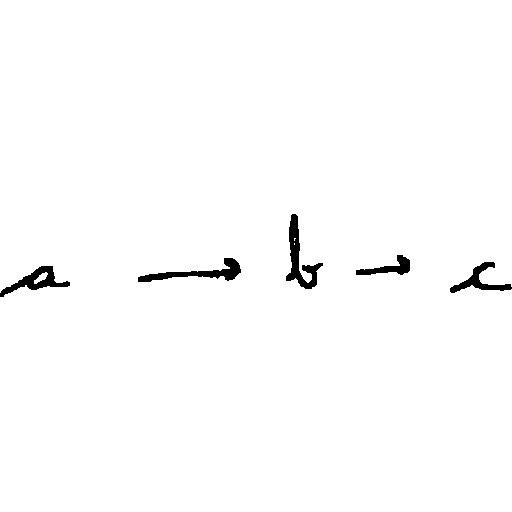 a → b → c